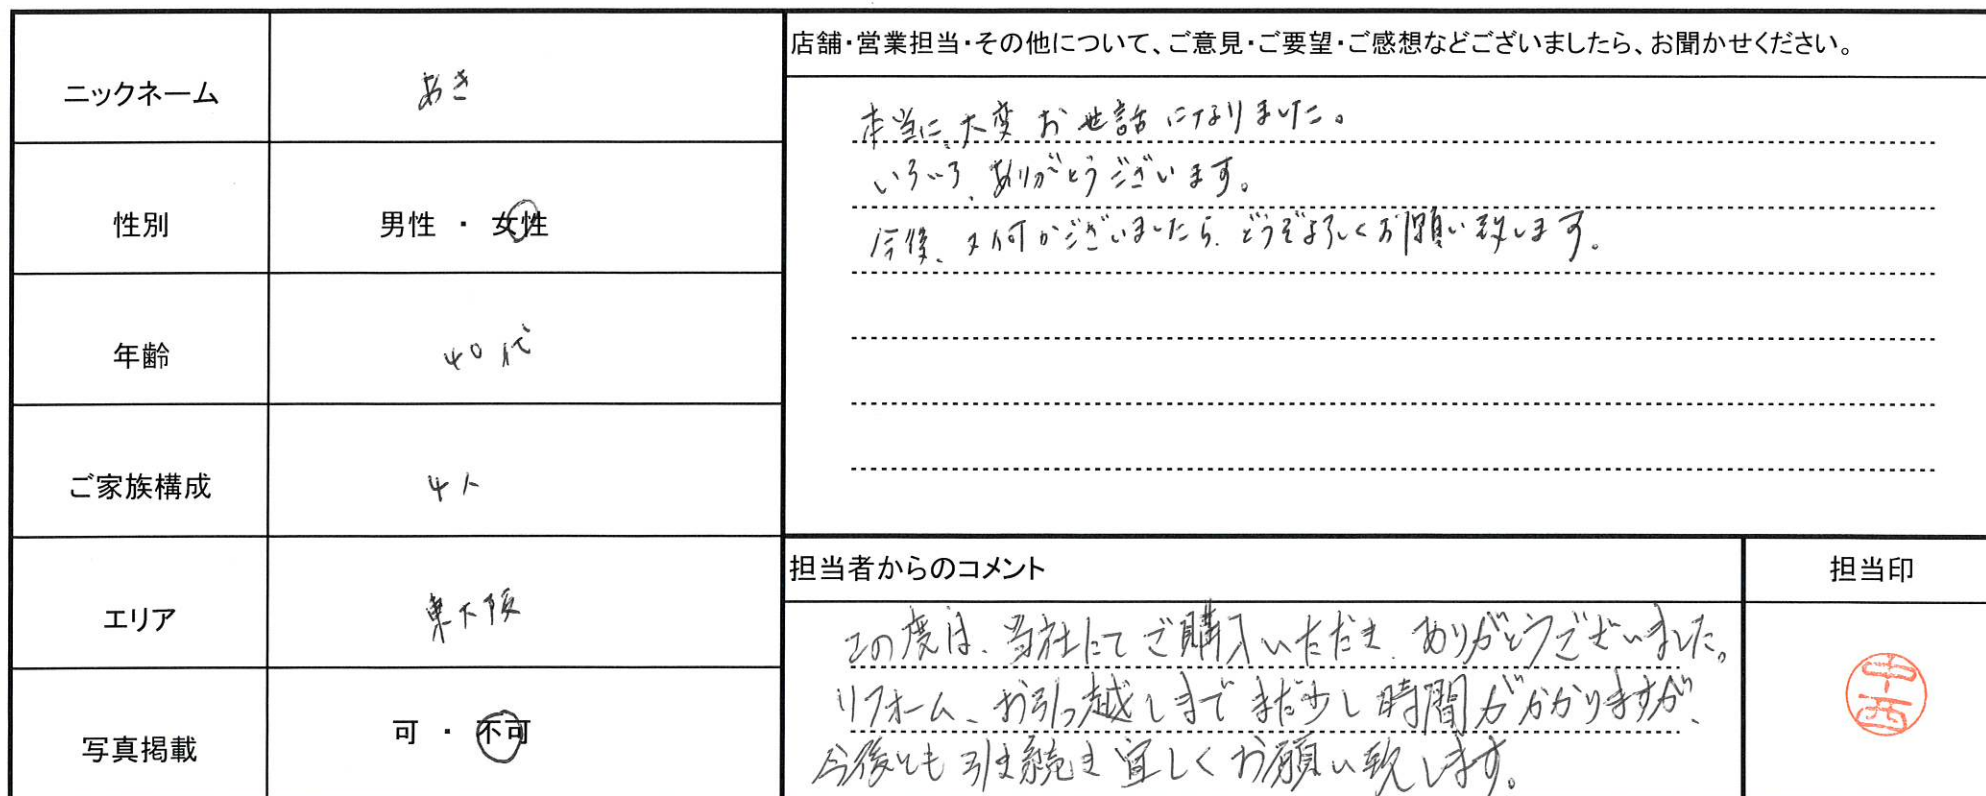 ニックネーム
あき
性別
男性 ・ 女性
年齢
40代
ご家族構成
4人
エリア
東大阪
写真掲載
可 ・ 不可
店舗・営業担当・その他について、ご意見・ご要望・ご感想などございましたら、お聞かせください。
本当に、大変お世話になりました。
いろいろ、ありがとうございます。
今後、又何かございましたら、どうぞよろしくお願い致します。
担当者からのコメント
この度は、当社にてご購入いただき、ありがとうございました。
リフォーム、お引っ越しまでまだ少し時間がかかりますが、
今後とも引き続き宜しくお願い致します。
担当印
中西